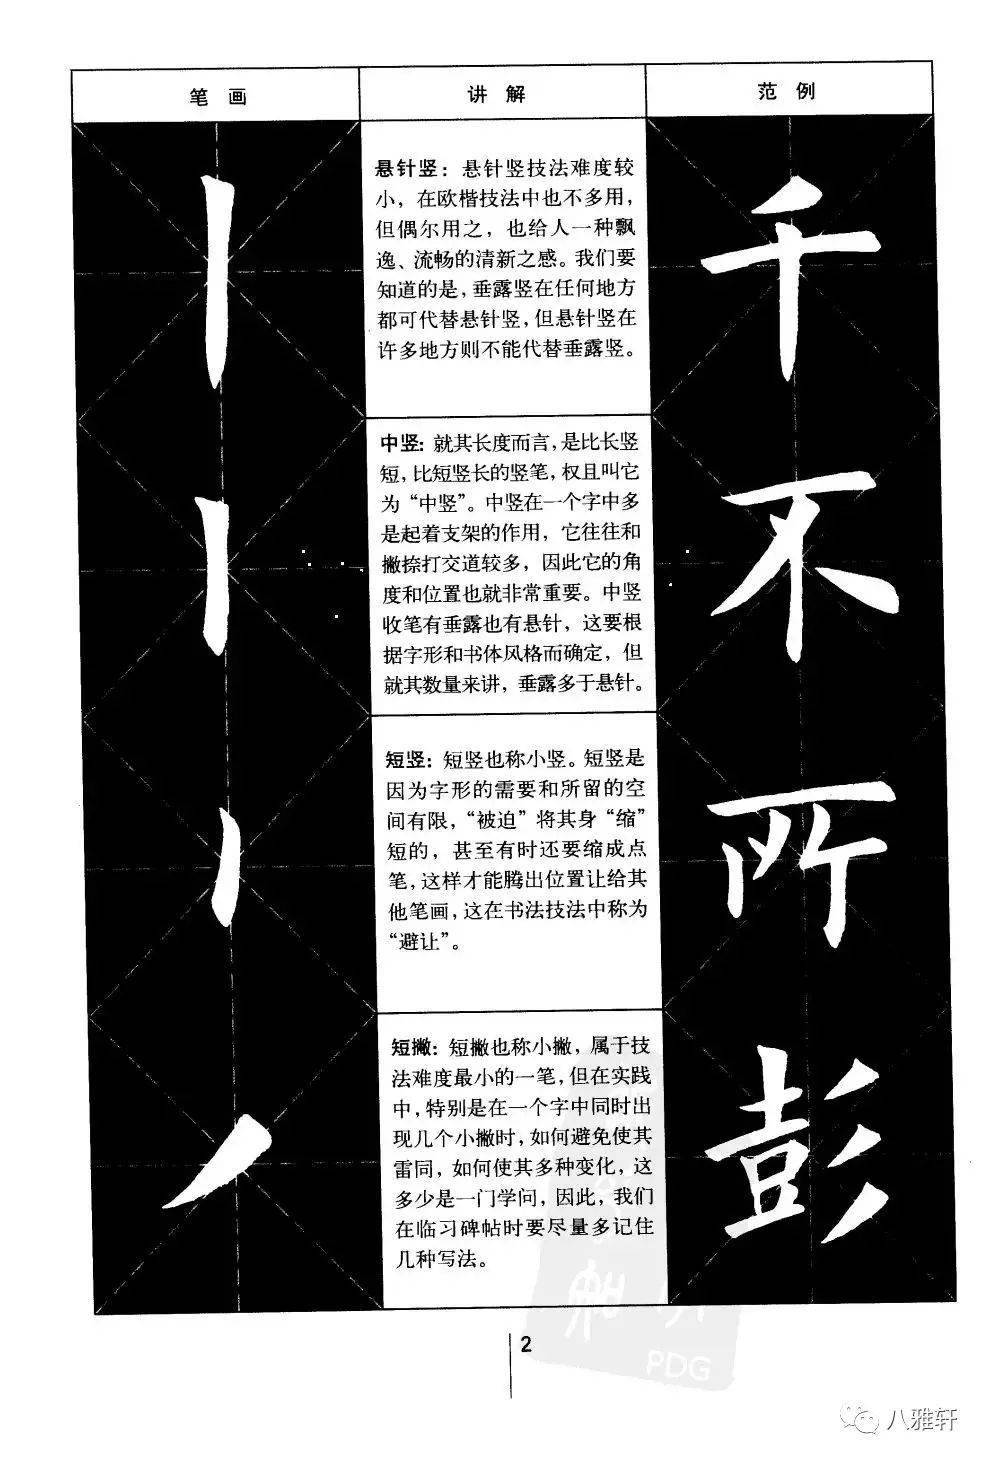 笔 画
讲 解
范 例
悬针竖：悬针竖技法难度较
小，在欧楷技法中也不多用，
但偶尔用之，也给人一种飘
逸、流畅的清新之感。我们要
知道的是，垂露竖在任何地方
都可代替悬针竖，但悬针竖在
许多地方则不能代替垂露竖。
千
中竖：就其长度而言，是比长竖
短，比短竖长的竖笔，权且叫它
为“中竖”。中竖在一个字中多
是起着支架的作用，它往往和
撇捺打交道较多，因此它的角
度和位置也就非常重要。中竖
收笔有垂露也有悬针，这要根
据字形和书体风格而确定，但
就其数量来讲，垂露多于悬针。
不
短竖：短竖也称小竖。短竖是
因为字形的需要和所留的空
间有限，“被迫”将其身“缩”
短的，甚至有时还要缩成点
笔，这样才能腾出位置让给其
他笔画，这在书法技法中称为
“避让”。
所
短撇：短撇也称小撇，属于技
法难度最小的一笔，但在实践
中，特别是在一个字中同时出
现几个小撇时，如何避免使其
雷同，如何使其多种变化，这
多少是一门学问，因此，我们
在临习碑帖时要尽量多记住
几种写法。
彭
2
PDG
八雅轩